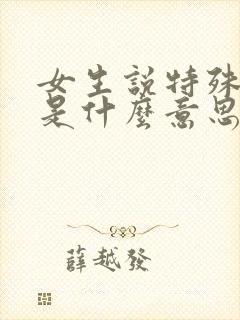 女生説特殊
是什麼意思
薛越發